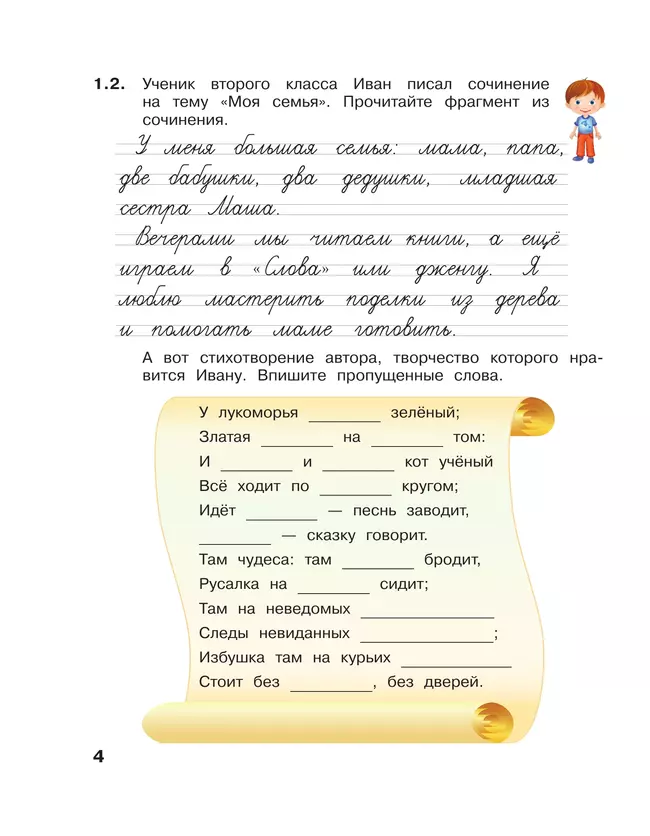 1.2. Ученик второго класса Иван писал сочинение
на тему «Моя семья». Прочитайте фрагмент из
сочинения.
У меня большая семья: мама, папа,
две бабушки, два дедушки, младшая
сестра Маша.
Вечерами мы читаем книги, а ещё
играем в «Слова» или дженгу. Я
люблю мастерить поделки из дерева
и помогать маме готовить.
А вот стихотворение автора, творчество которого нра-
вится Ивану. Впишите пропущенные слова.
У лукоморья ________ зелёный;
Златая ________ на ________ том:
И ________ и ________ кот учёный
Всё ходит по ________ кругом;
Идёт ________ — песнь заводит,
________ — сказку говорит.
Там чудеса: там ________ бродит,
Русалка на ________ сидит;
Там на неведомых _______________
Следы невиданных _______________;
Избушка там на курьих ____________
Стоит без _________, без дверей.
4